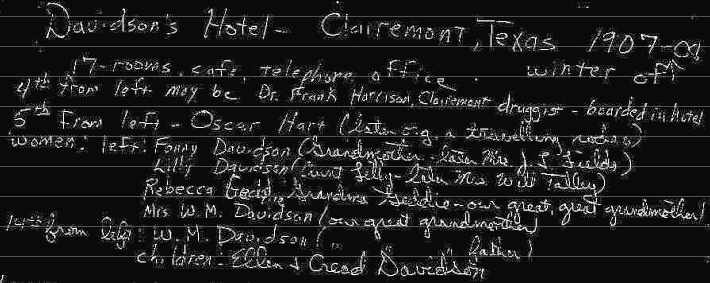 Davidson's Hotel - Clairemont, Texas 1907-08
17-rooms, cafe, telephone office. winter of
4th from left may be Dr. Frank Harrison, Clairemont druggist - boarded in hotel
5th from left - Oscar Hart (later a travelling
women: left: Fanny Davidson (Grandmother - later Mrs. J. L. Fields)
Lilly Davidson (Aunt Lilly - later Mrs. Will Talley)
Rebecca Grandma Geddie - our great, great grandmother)
Mrs W. M. Davidson (our great grandmother)
from left: W. M. Davidson ( " " father)
children: Ellen + Creed Davidson